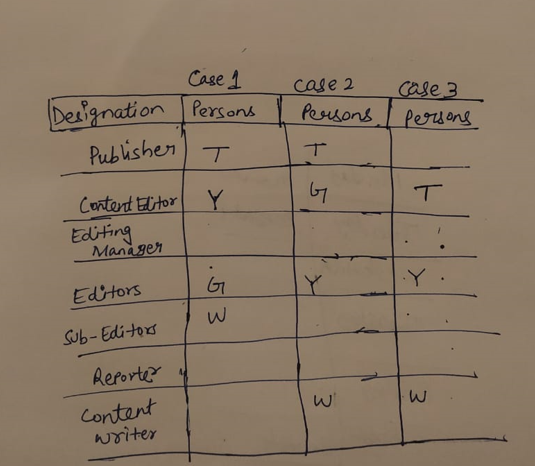 Case 1 Case 2 Case 3
Designation Persons Persons Persons
Publisher T T
Content Editor Y G T
Editing
Manager
Editors G Y Y
Sub-Editors W
Reporter
Content W W
writer